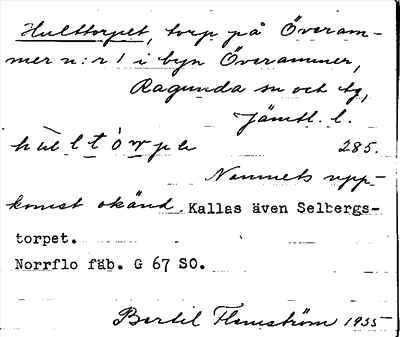 Hulttorpet, torp på Överam-
mer n:r 1 i byn Överammer,
Ragunda sn och tg,
Jämtl. l.
hultòrpe 285.
Namnets upp-
komst okänd. Kallas även Selbergs-
torpet.
Norrflo fäb. G 67 SO.
Bertil Flemström 1935